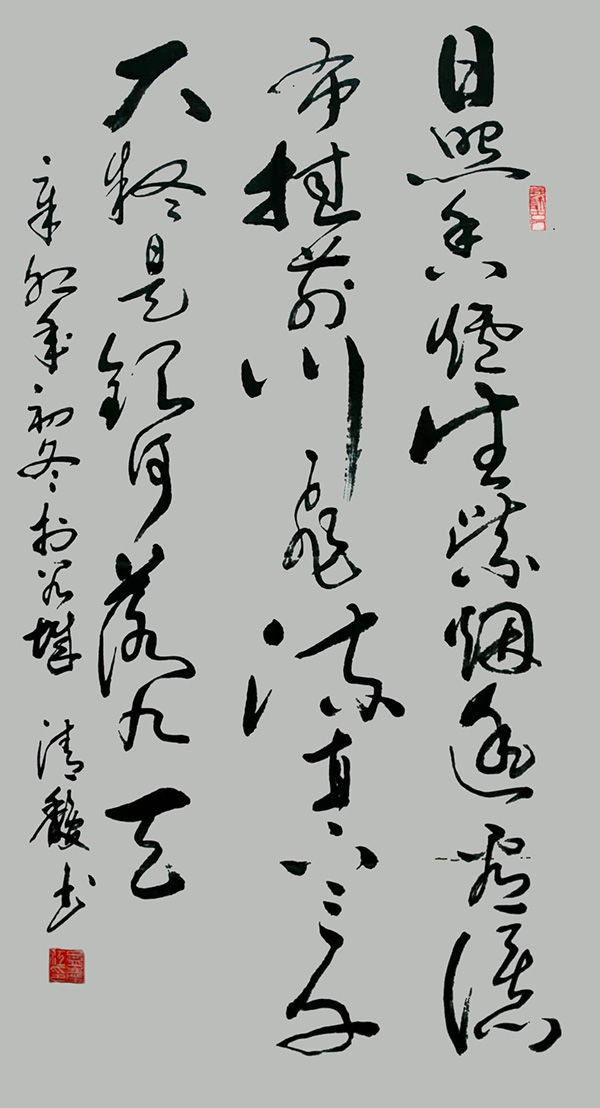 日照香爐生紫烟遥看瀑
布挂前川飛流直下三千
尺疑是銀河落九天
辛卯年初冬於谷城 清馥书